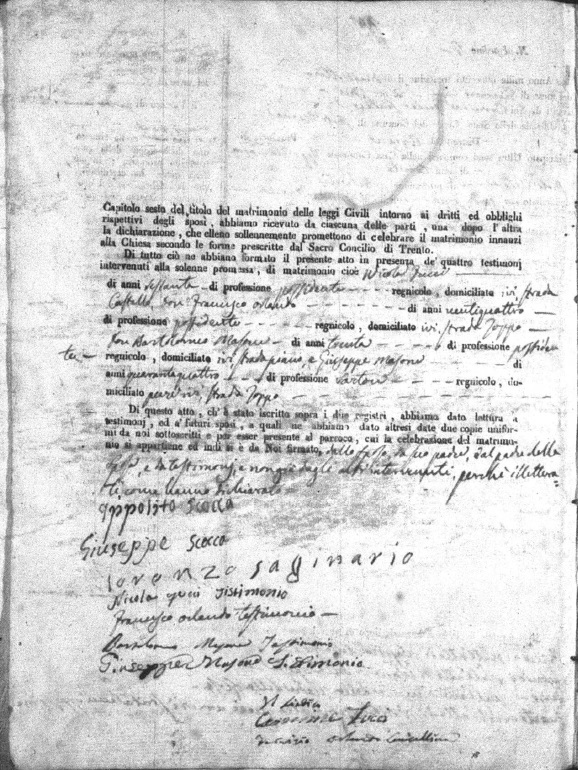 Capitolo sesto del titolo del matrimonio delle leggi Civili intorno ai dritti ed obblighi
rispettivi degli sposi, abbiamo ricevuto da ciascuna delle parti, una dopo l'altra
la dichiarazione, che elleno sollennemente promettono di celebrare il matrimonio innanzi
alla Chiesa secondo le forme prescritte dal Sacro Concilio di Trento.
Di tutto ciò ne abbiamo formato il presente atto in presenza de' quattro testimonj
intervenuti alla solenne promessa, di matrimonio cioè Nicola
di anni sessanta di professione possidente regnicolo, domiciliato ivi strada
Castello, Don Francesco Orlando di anni ventiquattro
di professione possidente regnicolo, domiciliato ivi, strada Toppo
Don Bartolomeo Masone di anni trenta di professione possiden
te regnicolo, domiciliato ivi strada piano, e Giuseppe Masone di
anni quarantaquattro di professione Sartore regnicolo, do-
miciliato pure ivi strada Toppo
Di questo atto, ch'è stato iscritto sopra i due registri, abbiamo dato lettura a
testimonj, ed a' futuri sposi, a quali ne abbiamo dato altresì date due copie unifor-
mi da noi sottoscritti e per esser presente al parroco, cui la celebrazione del matrimo-
nio si appartiene ed indi si è da Noi firmato, dallo sposo, da suo padre, dal padre della
sposa, e da testimonj, e non già dagli altri intervenuti, perchè illettera-
ti, come hanno dichiarato
Ippolito Scocca
Giuseppe Scocca
lorenzo saginario
Nicola Testimonio
Francesco Orlando testimonio
Bartolomeo Masone Testimonio
Giuseppe Masone Testimonio